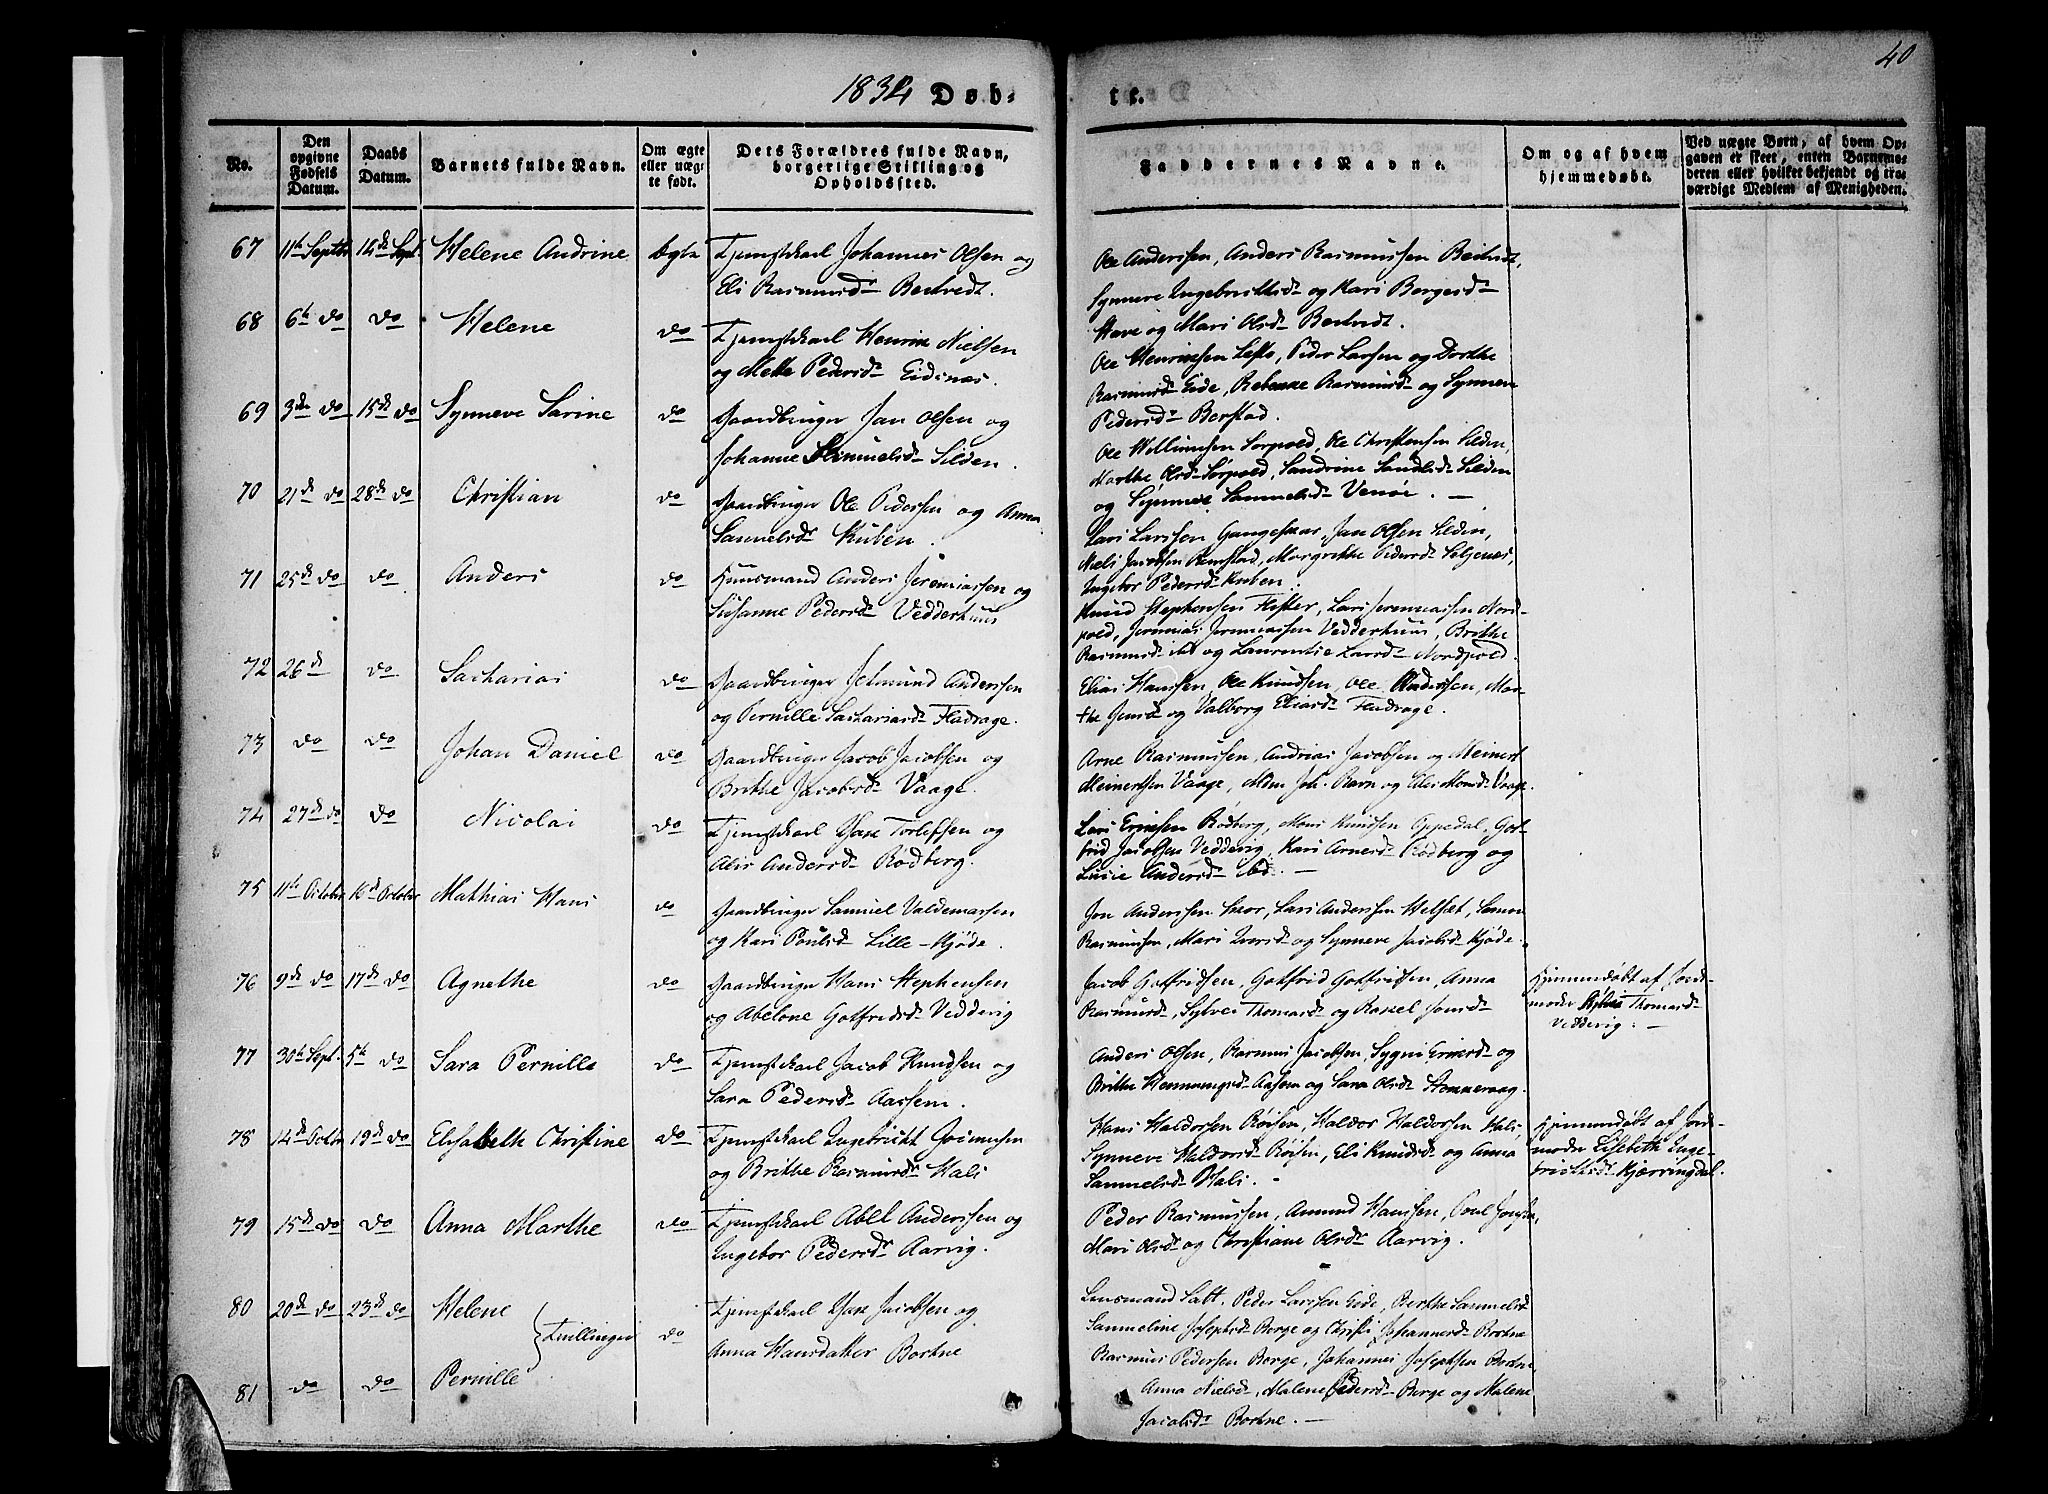 40
1834 Døb-
te.
No.
Den opgivne Fødsels Datum.
Daabs Datum.
Barnets fulde Navn.
Om ægte eller uægte født.
Dets Forældres fulde Navn, borgerlige Stilling og Opholdssted.
Faddernes Navne.
Om og af hvem hjemmedøbt.
Ved uægte Børn, af hvem Opgaven er skeet, enten Barnemoderen eller hvilket bekjendt og troværdigt Medlem af Menigheden.
67 11te Septbr 14de Sept. Helene Andrine ægte Tjenestekarl Johannes Olsen og
Eli Rasmusd Bortvedt.
Ole Anderssen, Anders Rasmussen
Synneve Ingebrittsd og Kari Borgesd
Have og Mari Olsd
68 6te do do Helene do Tjenestekarl Henrik Nielsen
og Mette Pedersd Eidsnes.
Ole Henriksen Lefto, Peder Larsen og Dorthe
Rasmusd Eide, Rasmusd og Synneve
Pedersd Berstad.
69 3die do 15de do Synneve Sarine do Gaardbruger Jan Olsen og
Johanne Samuelsd Silden.
Ole Willumsen Sørpold, Ole Christensen Silden,
Marthe Olsd Sørpold, Sandrine Silden
og Synneve Sammelsd
70 21de do 28de do Christian do Gaardbruger Ole Pedersen og Anna
Sammelsd Kuben.
Lars Larssen Jan Olsen Silden,
Niels Jacobsen Margrethe Pedersd Seljenes,
Ingebor Pedersd Kuben.
71 25de do do Anders do Huusmand Anders Jeremiassen og
Susanne Pedersd Vedderhuus
Knud Stephensen Fister, Lars Jeremiassen Nord-
pold, Jeremias Jeremiassen Vedderhuus, Brithe
Rasmusd ibd og Laurentse Larsd Nordpold.
72 26de do Sacharias do Gaardbruger Anderssen
og Pernille Sachariasd Fladrage.
Elias Hanssen, Ole Knudsen, Ole Mar-
the Jensd og Valborg Eliasd Fladrage.
73 do do Johan Daniel do Gaardbruger Jacob Jacobsen og
Brithe Jacobsd Vaage.
Arne Rasmussen, Andrias Jacobsen og Meinert
Meinertsen Vaage, Joh. Ravn og Vaage.
74 27de do do Nicolai do Tjenestekarl Torlefsen og
Andersd Rødberg.
Lars Eriksen Rødberg, Mons Knudsen Oppedal, Got-
frid Jacobsen Vedderig, Kari Arnesd Rødberg og
Lucie Andersd ibd. —
75 11te October 16de October Mathias Hans do Gaardbruger Samuel Valdemarssen
og Kari Poulsd Lille-Kjøde.
Jon Anderssen Lars Anderssen
Rasmussen, Mari Iversd og Synneve Jacobsd Kjøde.
76 9de do 17de do Agnethe do Gaardbruger Hans Stephensen
og Abelone Gotfredsd Vedderig
Jacob Gotfridsen, Gotfrid Gotfridsen, Anna
Rasmusd, Thomasd og Rakel Jonsd
Hjemmedøbt af Jord-
moder Thomasd
Vedderig. —
77 30te Sept. 5te do Sara Pernille do Tjenestekarl Jacob Knudsen og
Sara Pedersd Aassem.
Anders Olsen, Rasmus Jacobsen, Sygni Eriksd og
Brithe Hemmingsd Aasem og Sara Olsd
78 14de Octbr 19de do Elisabeth Christine do Tjenestekarl Ingebricht
og Brithe Rasmusd Hals
Hans Haldorsen Røisen, Haldor Haldorsen Hals,
Synneve Haldorsd Røisen, Eli Knudsd og Anna
Sammelsd Hals. -
Hjemmedøbt af Jord-
moder Lisebeth Inge-
brichtsd Kjerringdal.
79 15de do do Anna Marthe do Tjenestekarl Abel Anderssen og
Ingebor Pedersd Aarvig.
Peder Rasmussen, Amund Hanssen, Poul
Mari Olsd og Christiane Olsd Aarvig.
80 20de do 23de do Helene
} Tvillinger do Tjenestekarl Jacobsen og
Anna Hansdatter Bortne
Lensmand Peder Larssen Eide, Berthe Sammelsd
Sammeline Josephsd Borge og Christi Johannesd Bortne
81 do do Pernille
Rasmus Pedersen Borge, Johannes Josephsen Bortne
Anna Nielsd, Malene Pedersd Borge og Malene
Jacobsd Bortne. —